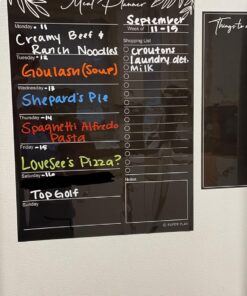 Meal Planner
September
Monday - 11
Week of 11-15
Creamy Beef &
Ranch Noodles
Shopping List
croutons
laundry det.
milk
Tuesday - 12
Goulash (Soup)
Wednesday - 13
Shepard's Pie
Thursday - 14
Spaghetti Alfredo
Pasta
Friday - 15
LoveSee's Pizza?
Saturday - 16
Top Golf
Sunday
Notes
Things to